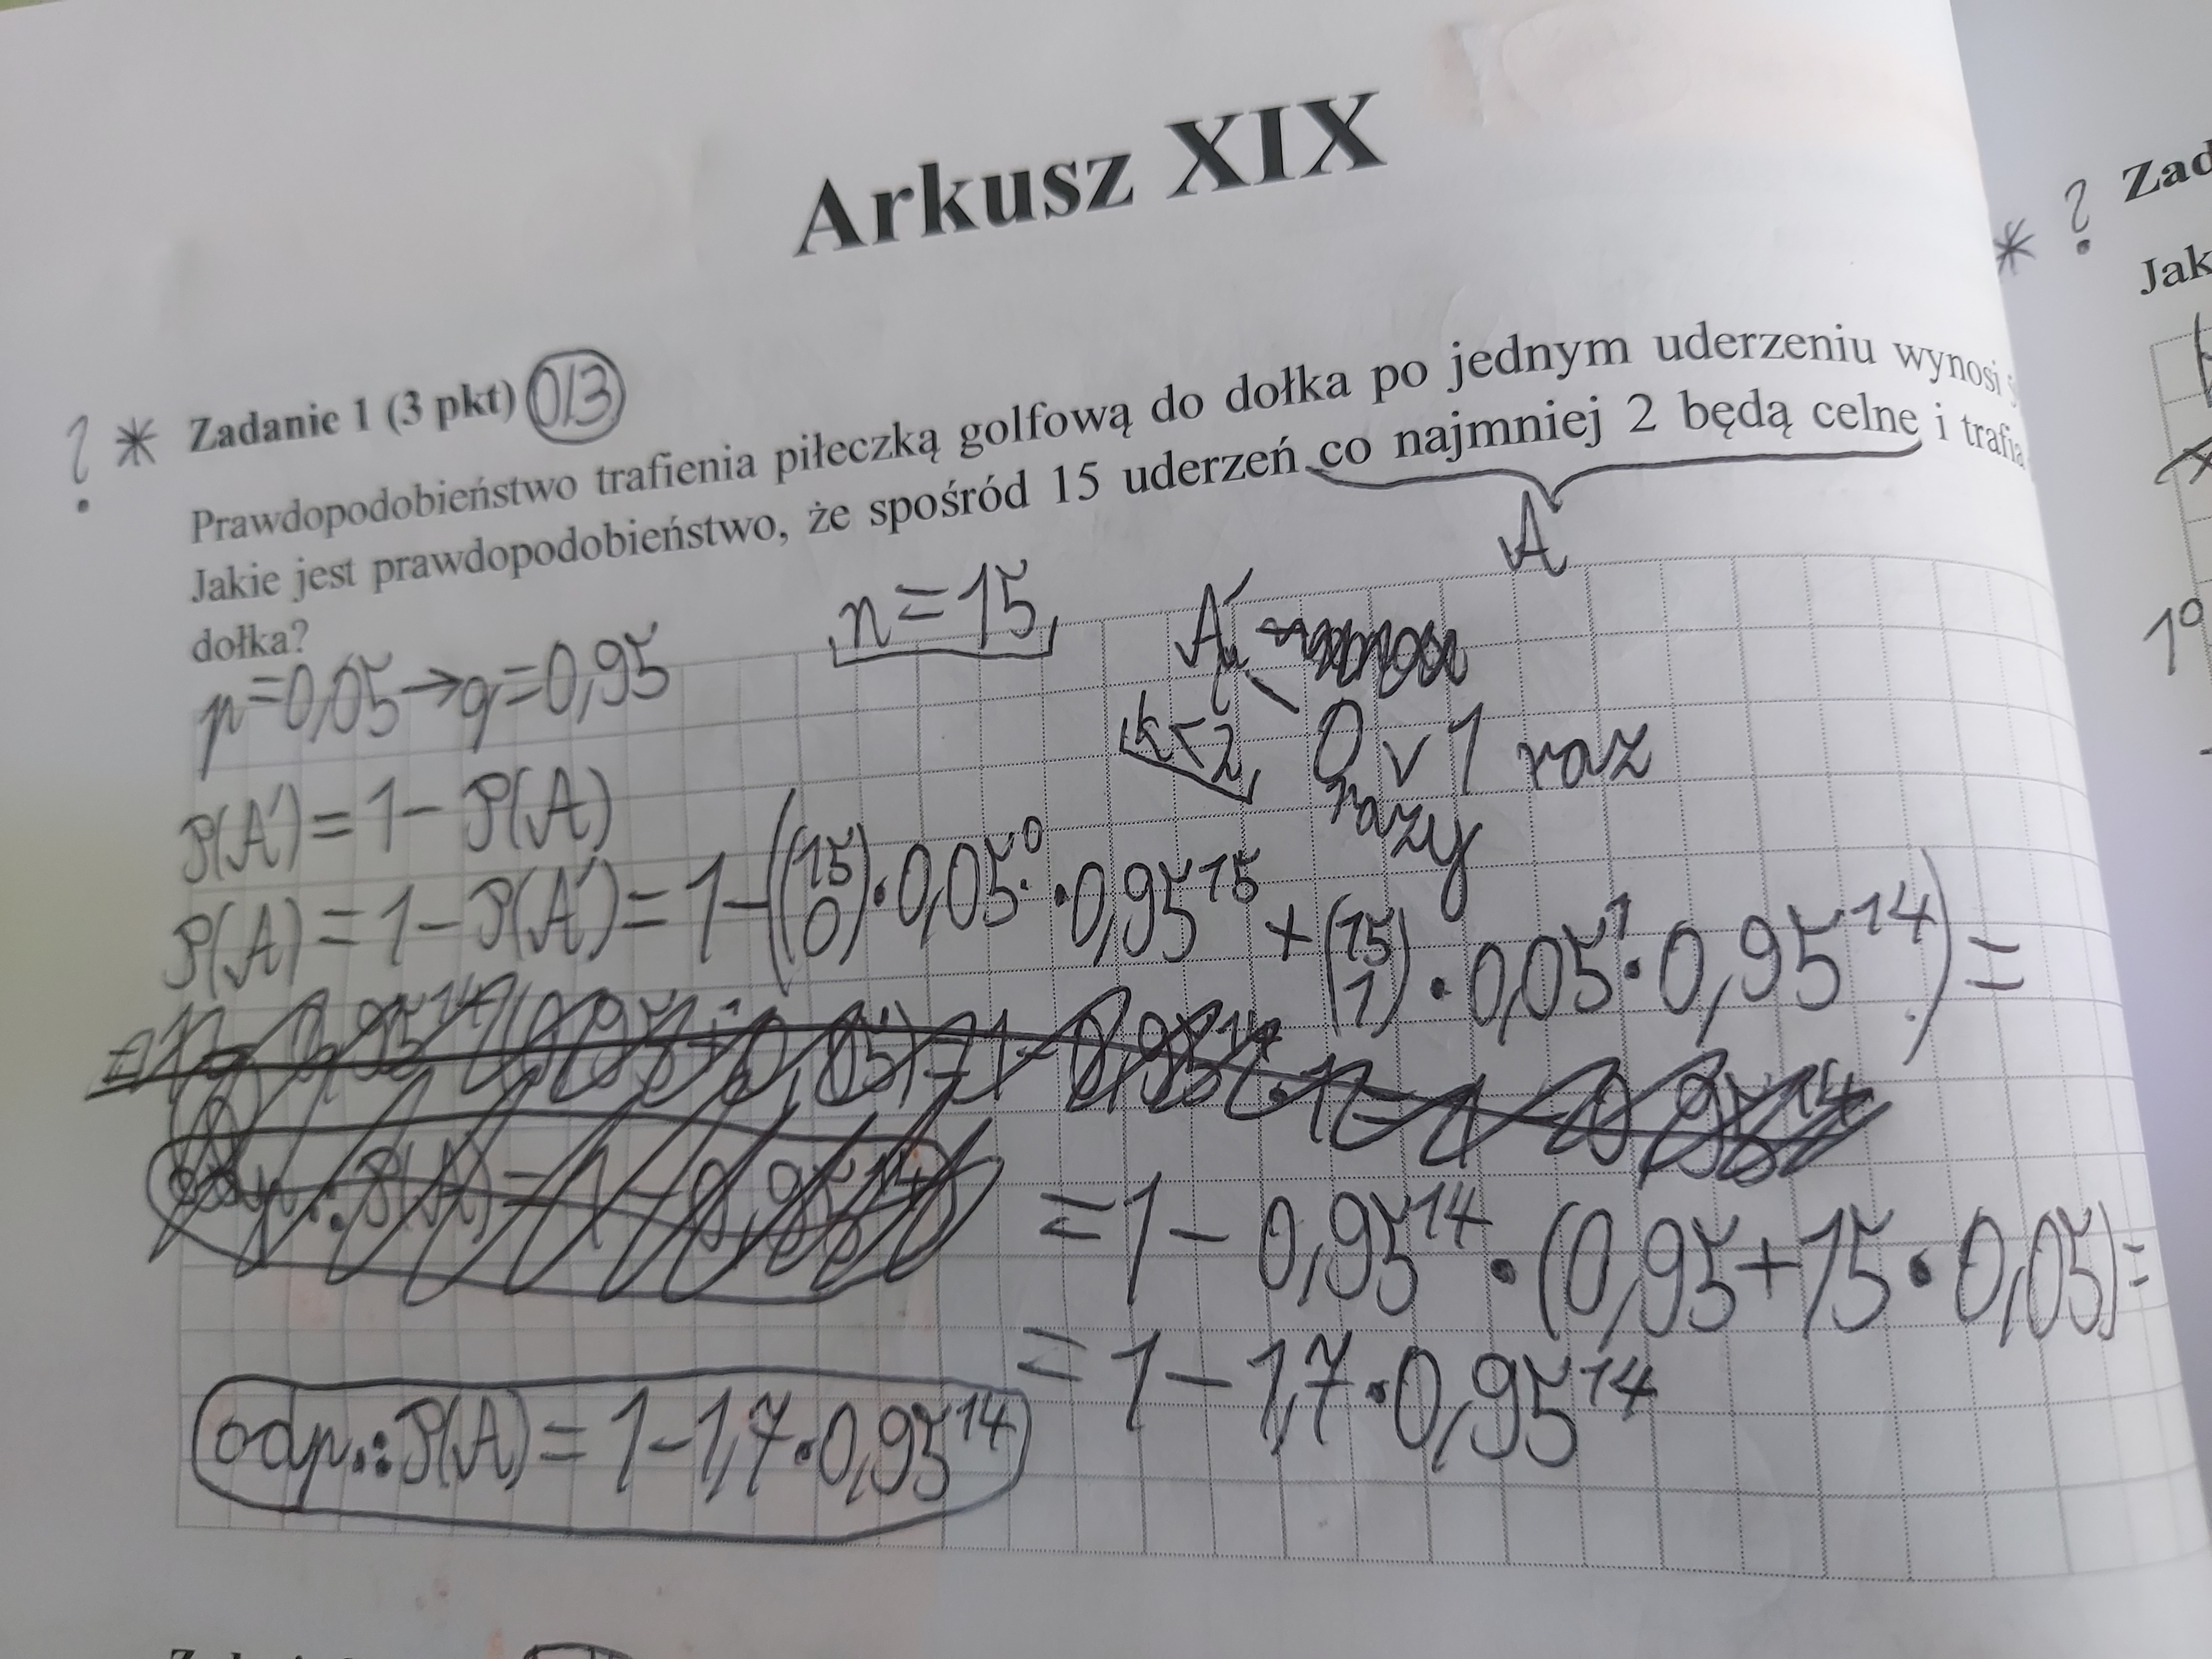 Arkusz XIX
? * Zadanie 1 (3 pkt) 0/3
Prawdopodobieństwo trafienia piłeczką golfową do dołka po jednym uderzeniu wynosi
Jakie jest prawdopodobieństwo, że spośród 15 uderzeń co najmniej 2 będą celne i trafią
dołka?
A
p=0,05→q=0,95
n=15
A' -
k<2
0 razy v 1 raz
P(A')=1-P(A)
P(A)=1-P(A')=1-((15 0)·0,05^0·0,95^15+(15 1)·0,05^1·0,95^14)=
=1-0,95^14·(0,95+15·0,05)=
=1-1,7·0,95^14
odp.: P(A)=1-1,7·0,95^14
* ? Zad
Jak
1°